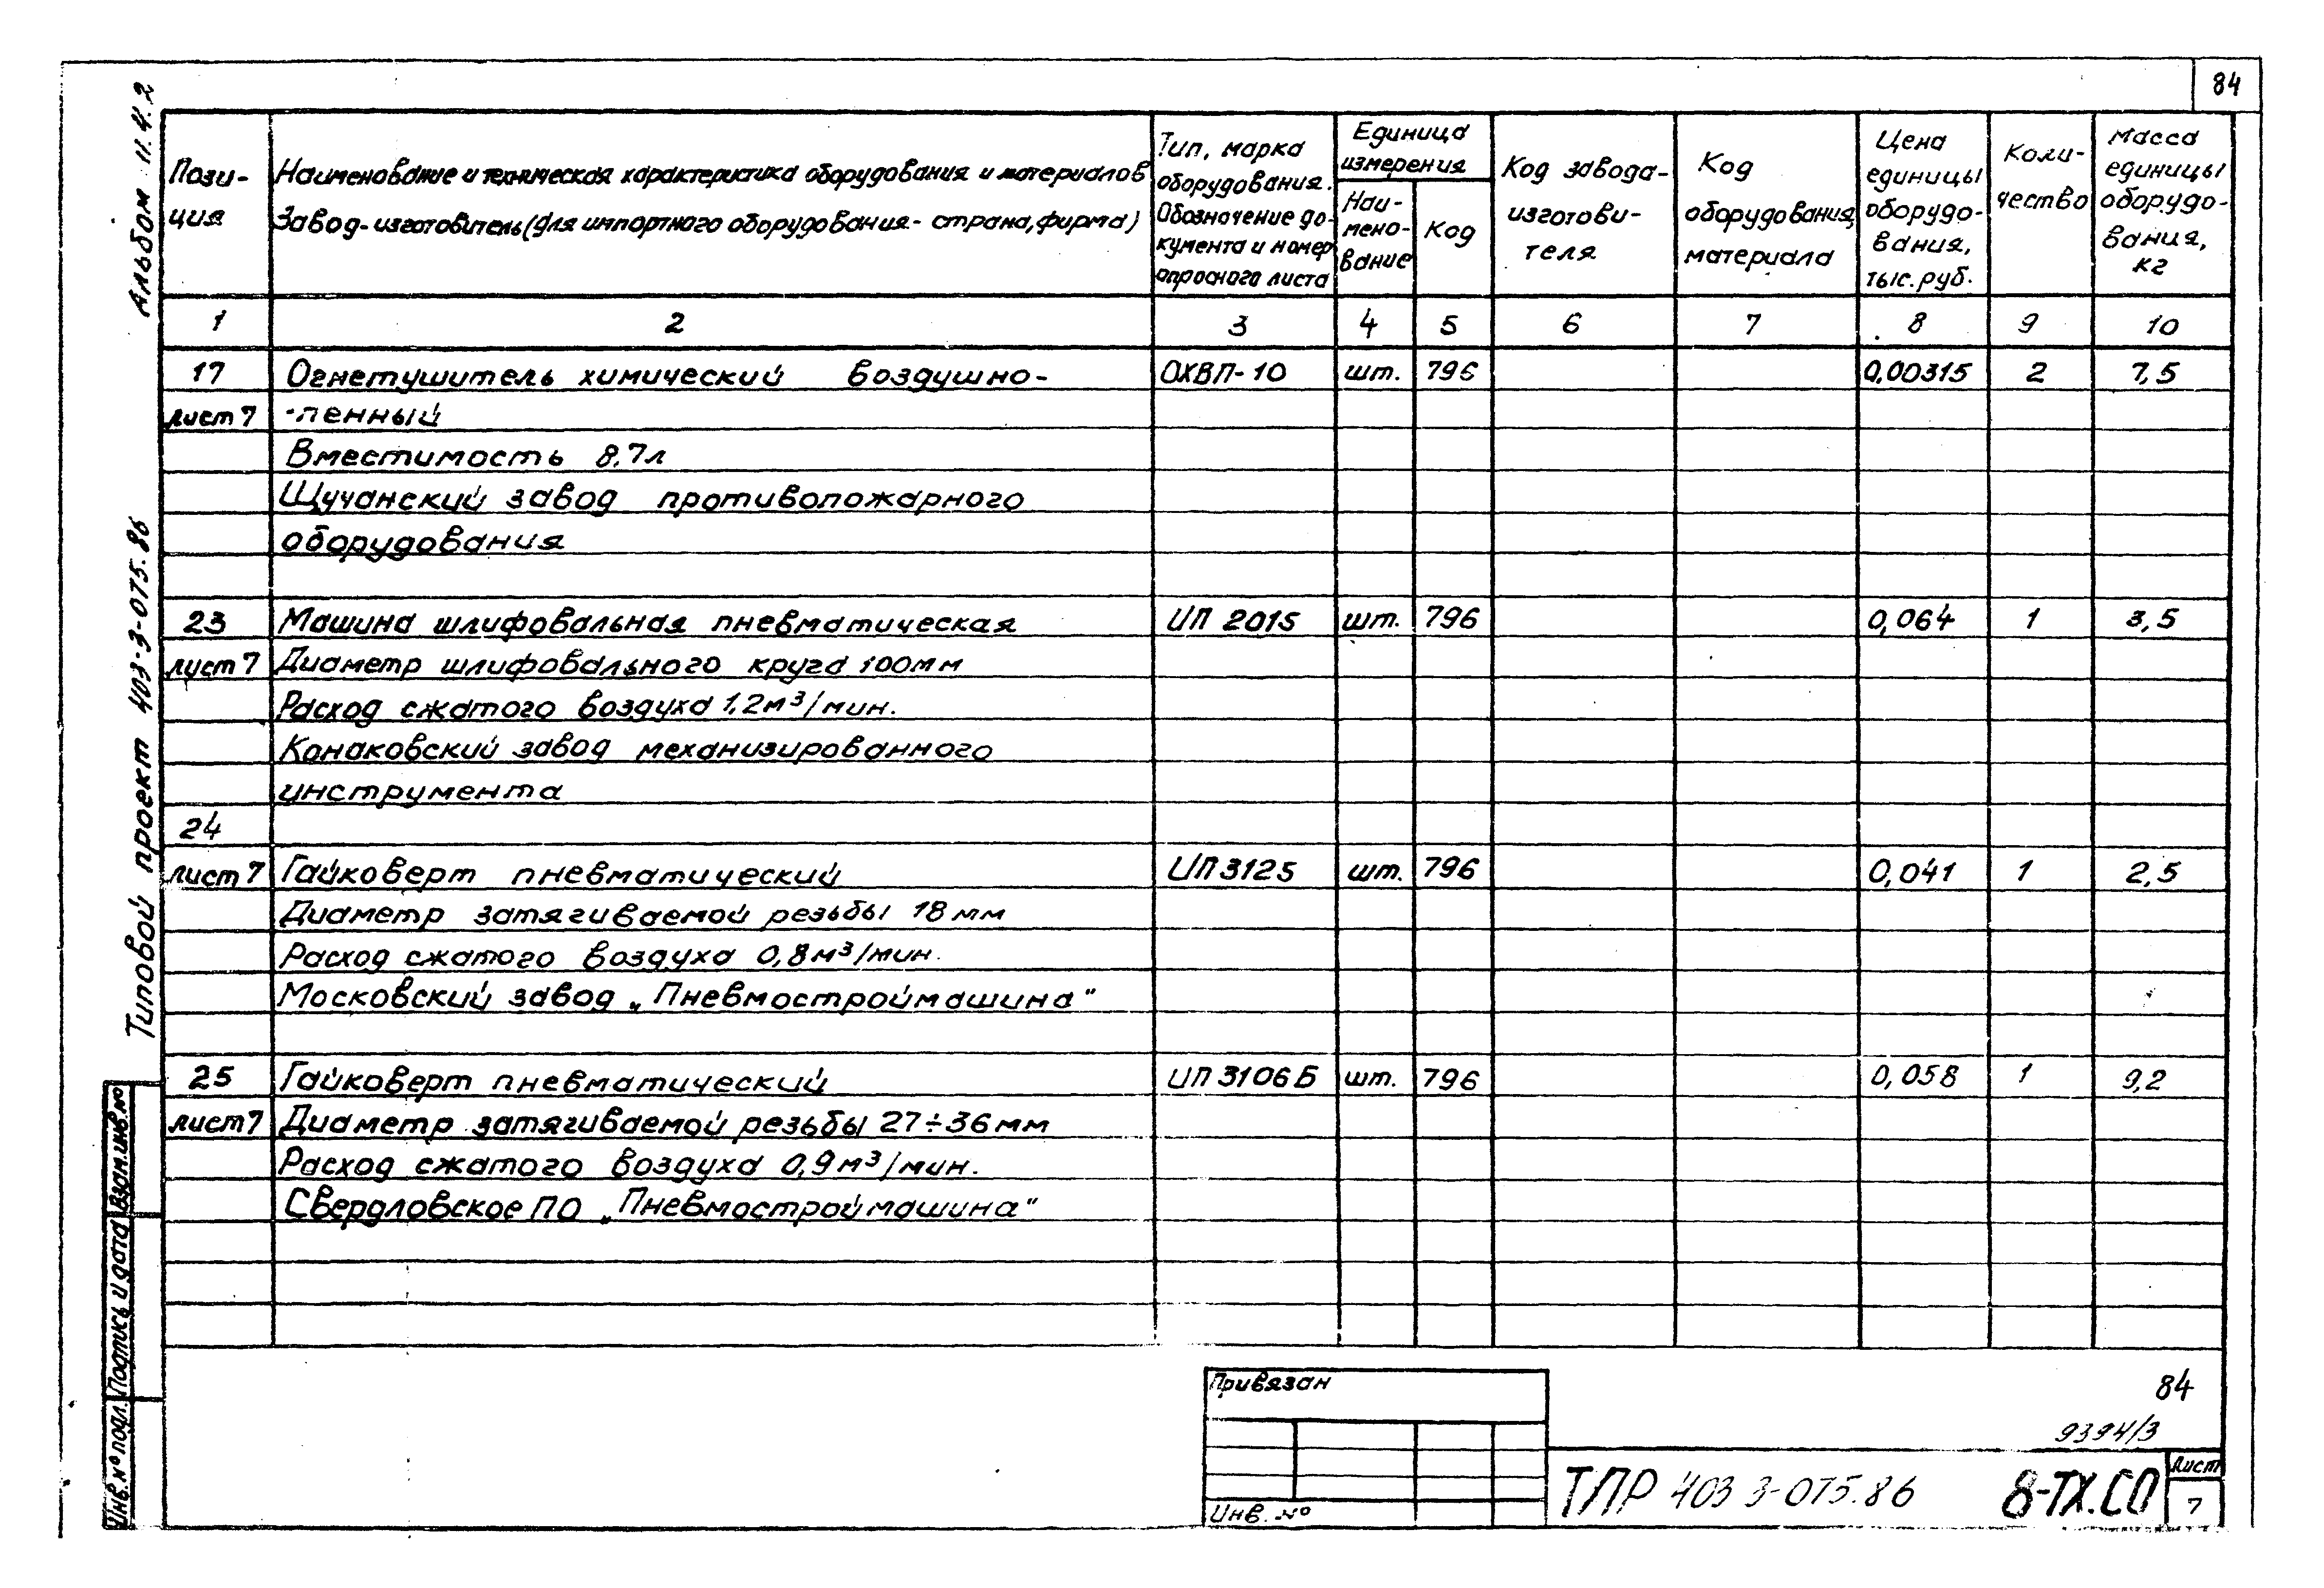 84
Альбом 11.4.2
Типовой проект 403-3-075.86
Пози-
ция
Наименование и техническая характеристика оборудования и материалов
Завод-изготовитель (для импортного оборудования - страна, фирма)
Тип, марка
оборудования.
Обозначение до-
кумента и номер
опросного листа
Единица
измерения
Наи-
мено-
вание
Код
Код завода-
изготови-
теля
Код
оборудования,
материала
Цена
единицы
оборудо-
вания,
тыс. руб.
Коли-
чество
Масса
единицы
оборудо-
вания,
кг
1 2 3 4 5 6 7 8 9 10
17 Огнетушитель химический воздушно- ОХВП-10 шт. 796 0,00315 2 7,5
лист 7 -пенный
Вместимость 8,7л
Щучанский завод противопожарного
оборудования
23 Машина шлифовальная пневматическая ИП 2015 шт. 796 0,064 1 3,5
лист 7 Диаметр шлифовального круга 100мм
Расход сжатого воздуха 1,2м³/мин.
Конаковский завод механизированного
инструмента
24
лист 7 Гайковерт пневматический ИП 3125 шт. 796 0,041 1 2,5
Диаметр затягиваемой резьбы 18мм
Расход сжатого воздуха 0,8м³/мин.
Московский завод „Пневмостроймашина"
25 Гайковерт пневматический ИП 3106Б шт. 796 0,058 1 9,2
лист 7 Диаметр затягиваемой резьбы 27÷36мм
Расход сжатого воздуха 0,9м³/мин.
Свердловское ПО „Пневмостроймашина"
Взам.инв.№
Подпись и дата
Инв.№ подл.
Привязан
Инв. №
84
9394/3
ТПР 403 3-075.86 8-ТХ.СО
Лист
7